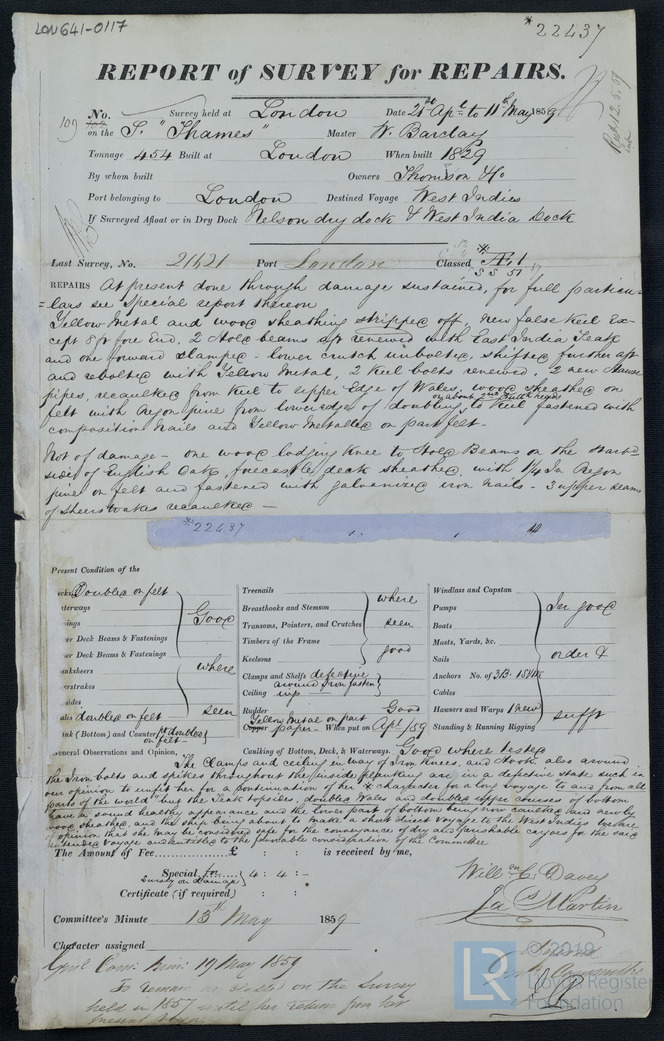 LON641-0117
*22437
REPORT of SURVEY for REPAIRS.
No. Survey held at London Date 21st Apl to 11th May 1859
109
on the S. "Thames" Master W. Barclay
Tonnage 454 Built at London When built 1829
By whom built Owners Thomson & Co
Port belonging to London Destined Voyage West Indies
If Surveyed Afloat or in Dry Dock Nelson dry dock & West India Dock
Last Survey, No. 21621 Port London Classed Æ 1
S S 57
REPAIRS At present done through damage sustained, for full particu-
=lars see special report thereon
Yellow Metal and wood sheathing stripped off, new false keel Ex-
cept 8 ft fore End, 2 Hold beams aft renewed with East India Teak
and one forward clamped - lower crutch unbolted, shifted further aft
and rebolted with Yellow Metal, 2 keel bolts renewed, 2 new Hause
pipes, recaulked from Keel to upper Edge of Wales, wood sheathed on
felt with Oregon pine from lower edge of doubling to keel fastened with
composition Nails and Yellow Metalled on part felt -
Not of damage - one wood lodging Knee to Hold Beams on the Starbd
side of English Oak, forecastle deck sheathed, with 1¼ In Oregon
pine on felt and fastened with galvanized iron Nails - 3 upper seams
of sheerstrakes recaulked -
*22437
Present Condition of the
Doubled on felt
Good
er Deck Beams & Fastenings
er Deck Beams & Fastenings
where
seen
doubled on felt
(Bottom) and Counter pt doubled
on felt -
Treenails
Breasthooks and Stemson
Transoms, Pointers, and Crutches
Timbers of the Frame
Keelsons
where
seen
good
Clamps and Shelfs defective
around Iron fasten
Ceiling ings
Rudder Good
Yellow Metal on part
Copper paper - When put on Apl/59
Windlass and Capstan
Pumps
Boats
Masts, Yards, &c.
Sails
Anchors No. of 3B. 1S
Cables
Hawsers and Warps 1 new
Standing & Running Rigging
In good
order &
sufft
General Observations and Opinion, Caulking of Bottom, Deck, & Waterways. Good where tested
The Clamps and ceiling in way of Iron Knees, and Hook, also around
the Iron bolts and spikes throughout the inside planking are in a defective state such in
our opinion to unfit her for a continuation of her Æ character for a long voyage to and from all
parts of the world but the Teak topsides, doubled Wales and doubled upper courses of bottom
have a sound healthy appearance and the lower part of bottom being now caulked and newly
wood sheathed, and the ship being about to make a short direct voyage to the West Indies we are
of opinion that she may be considered safe for the conveyance of dry and perishable cargoes for the said
intended voyage and entitled to the favorable consideration of the Committee
The Amount of Fee......£ : : is received by me,
Special for 4 : 4 : -
Survey on damage
Certificate (if required) : :
Willm C. Davey
Jas Martin
Committee's Minute 13th May 1859
Character assigned
Genl Com: Min: 19 May 1859
To remain as classed on the Survey
held in 1857 until her return from her
present
© 2019
LR
Lloyd's Register
Foundation